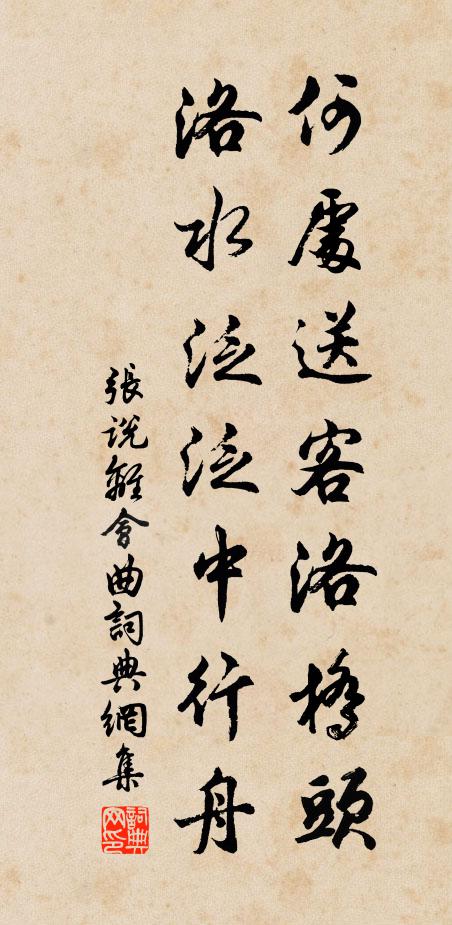 何處送客洛橋頭
洛水泛泛中行舟
張說離會曲詞典網集
詞典网印